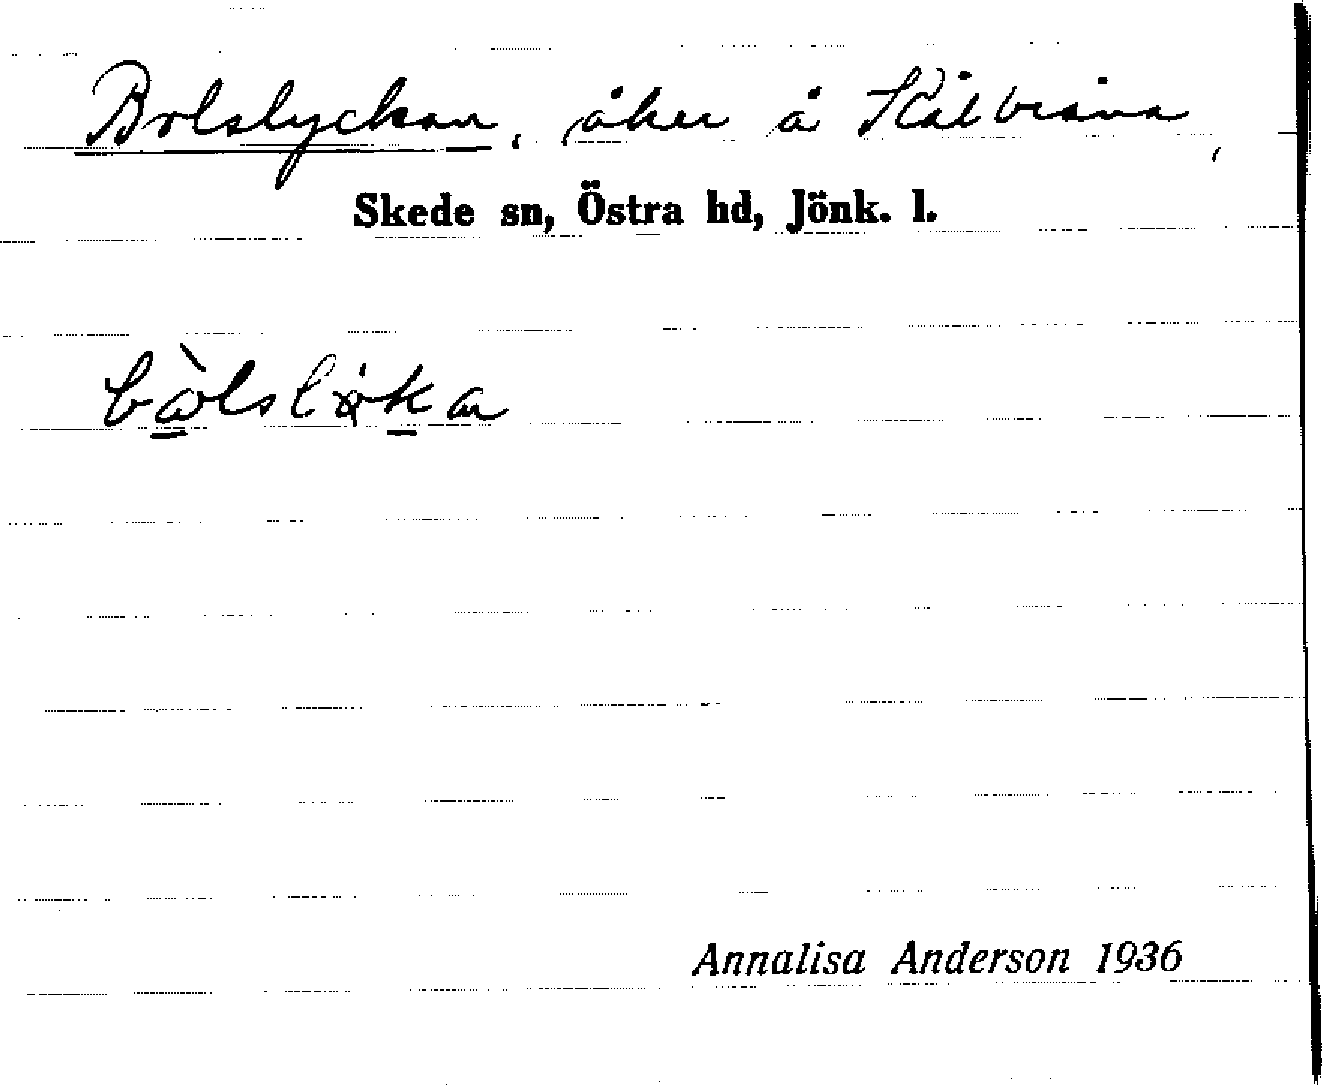 Bolslyckan, åker å Kålbråna,
Skede sn, Östra hd, Jönk. l.
bòlslökan
Annalisa Anderson 1936